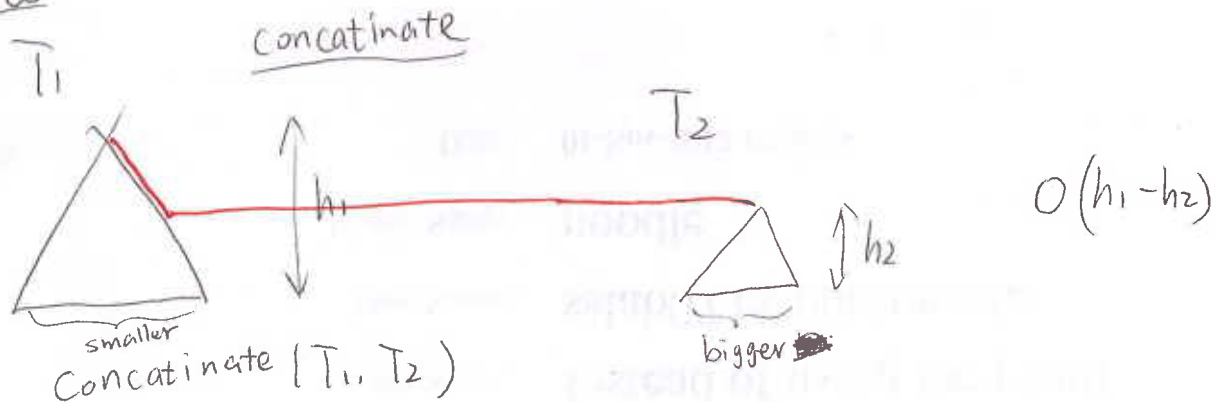 concatinate
T1
T2
h1
O(h1-h2)
h2
smaller
bigger
Concatinate (T1, T2)